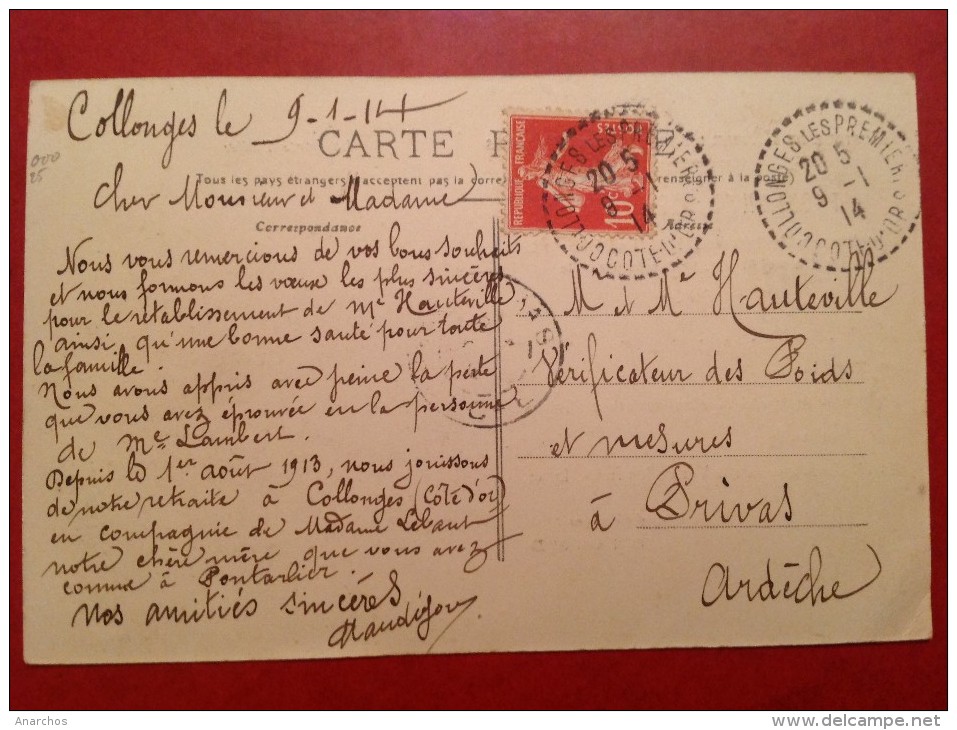 Collonges le 9-1-14
CARTE P
Tous les pays étrangers acceptent pas la corre
renseigner à la poste)
Cher Monsieur et Madame
Correspondance
Adresse
REPUBLIQUE FRANÇAISE
POSTES
10c
COLLONGES LES PREMIERES
COTE D'OR
20 5
9 -1
14
COLLONGES LES PREMIERES
COTE D'OR
20 5
9 -1
14
000
25
Nous vous remercions de vos bons souhaits
et nous formons les vœux les plus sincères
pour le rétablissement de Me Hauteville
ainsi, qu'une bonne santé pour toute
la famille.
Nous avons appris avec peine la perte
que vous avez éprouvée en la personne
de Me Lambert.
Depuis le 1er août 1913, nous jouissons
de notre retraite à Collonges (Côte d'or)
en compagnie de Madame Lebaut
notre chère mère que vous avez
connue à Pontarlier.
Nos amitiés sincères
M et Me Hauteville
Vérificateur des Poids
et mesures
à Privas
Ardèche
Anarchos
www.delcampe.net